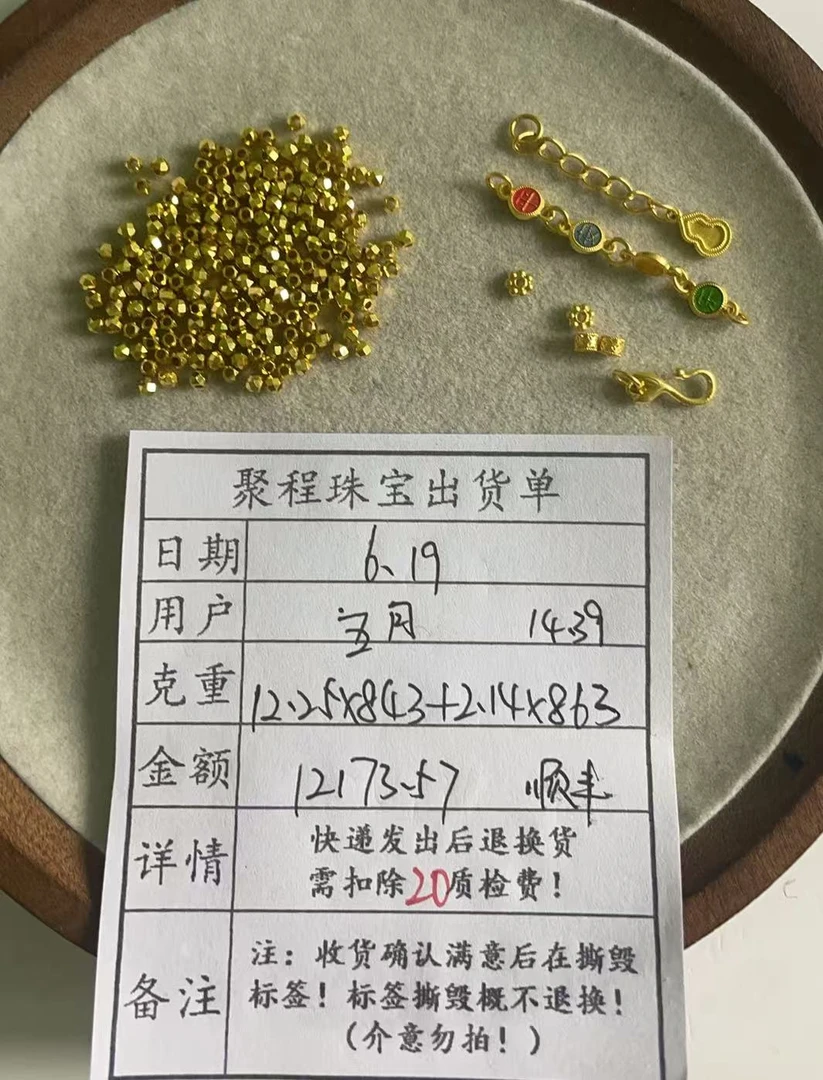 聚程珠宝出货单
日期 6.19
用户 五月 14.39
克重 12.25×843+2.14×863
金额 12173.57 顺丰
详情 快递发出后退换货
需扣除20质检费!
备注 注:收货确认满意后在撕毁
标签!标签撕毁概不退换!
(介意勿拍!)